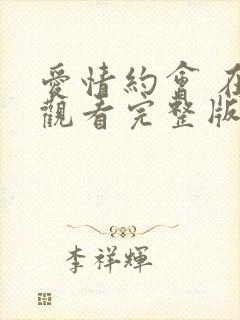 愛情約會 在
觀看完整版
李祥輝